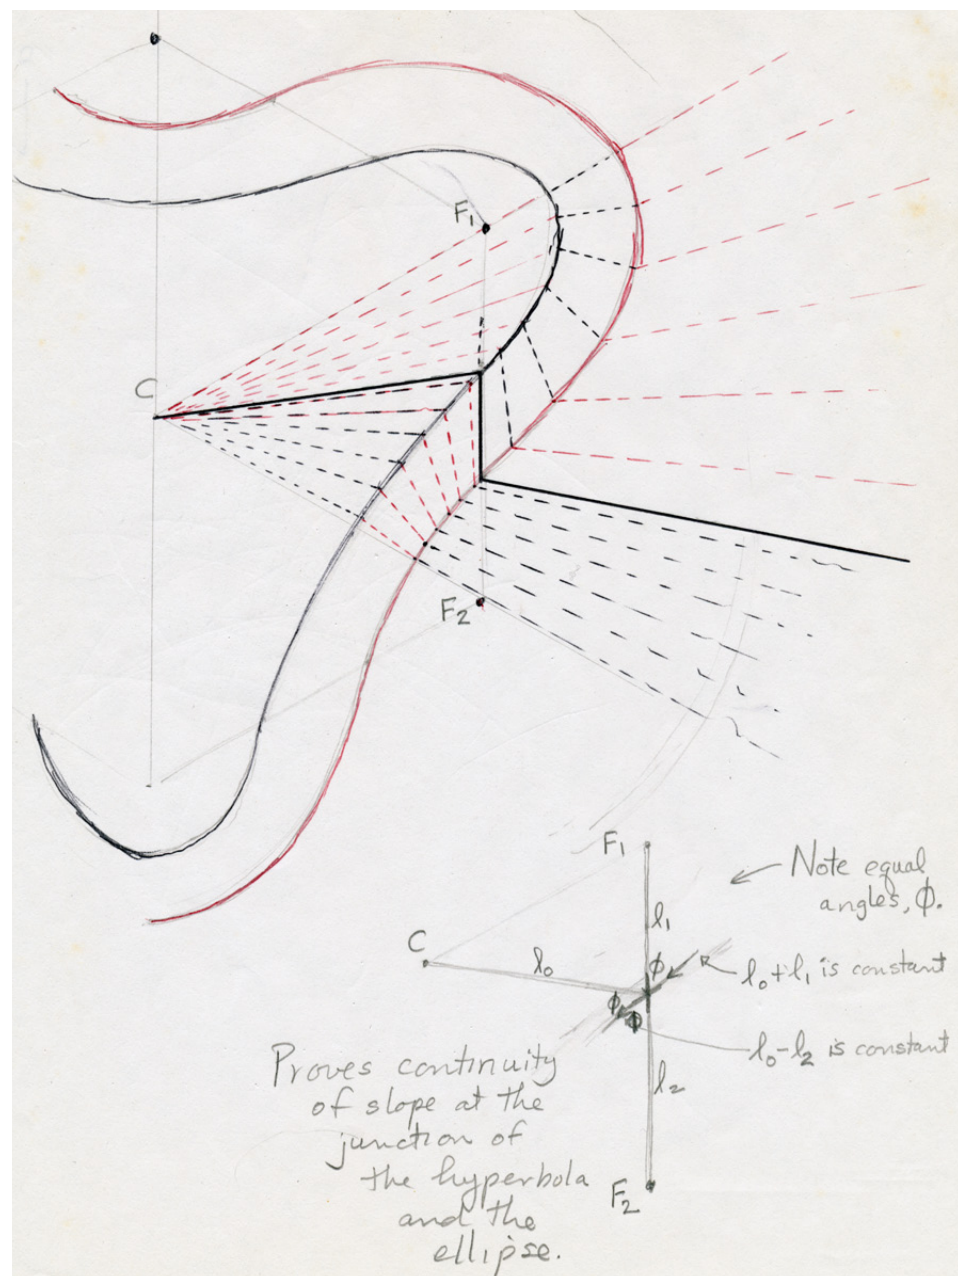 F1
C
F2
F1
Note equal
angles, ϕ.
l1
C
l0
ϕ
l0+l1 is constant
ϕ
ϕ
l0-l2 is constant
Proves continuity
of slope at the
junction of
the hyperbola
and the
ellipse.
l2
F2